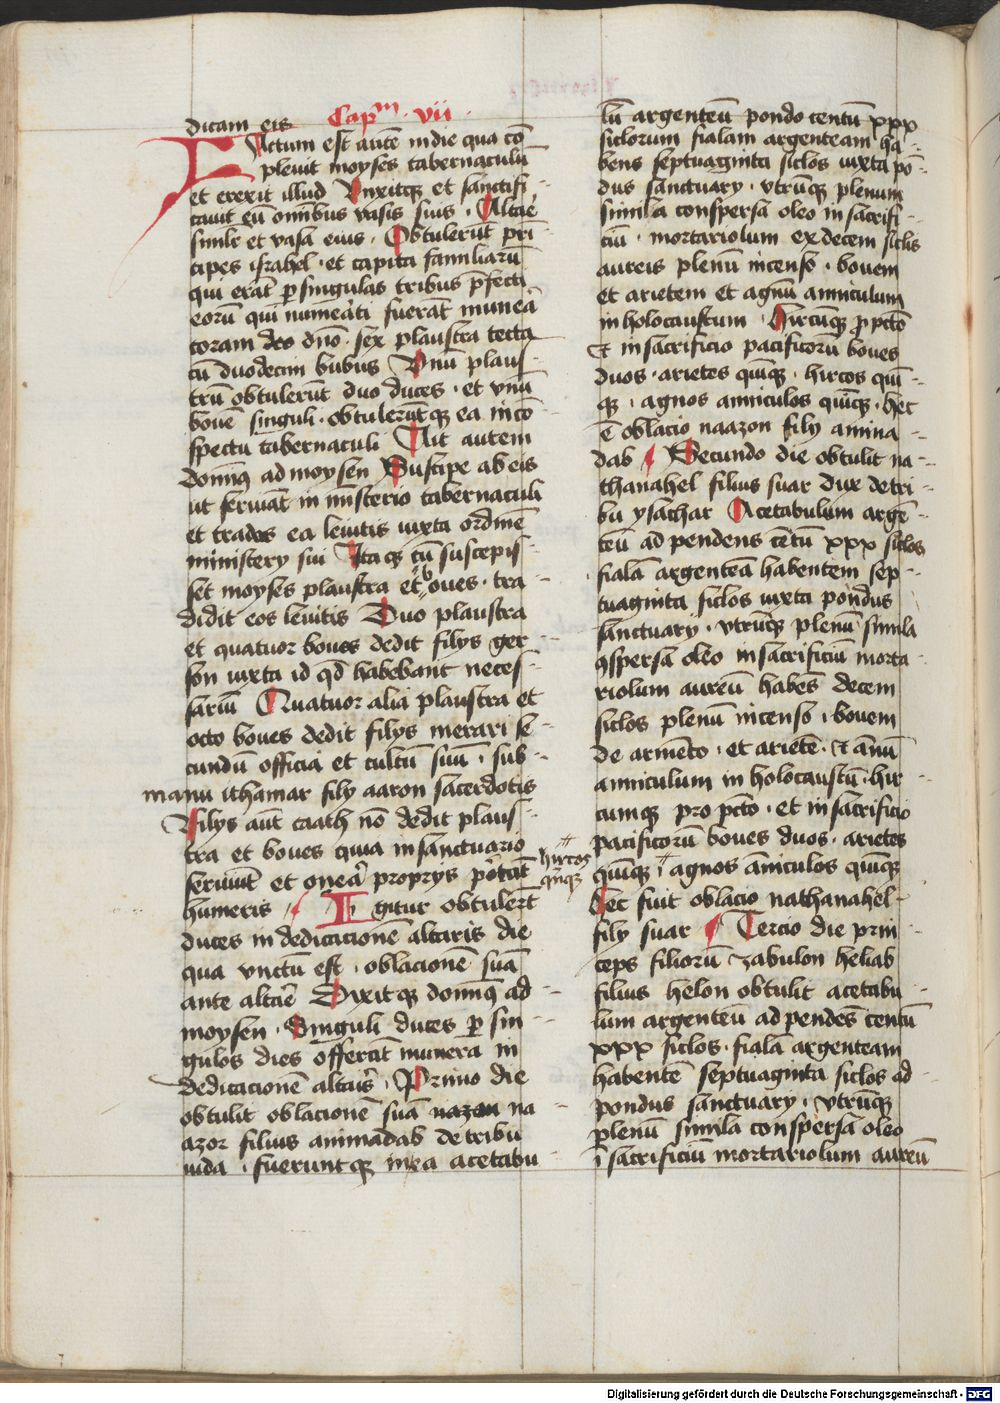 dicam eis Capm · vii ·
FActum est autē in die qua cō
pleuit moyses tabernaculū
et erexit illud Vnxitqȝ et sanctifi
cauit eū omībus vasis suis · Altaē
similr et vasa eius · Obtulerūt prī
cipes israhel · et capita familiarū
qui erāt ꝑ singulas tribus p̄fecti
eorū qui numeāti fuerāt muneā
coram deo dn̄o · sex plaustra tecta
cū duodecim bubus Vnū plaus
trū obtulerūt duo duces · et vnū
bouē singuli · obtulerūtqȝ ea in cō
spectu tabernaculi Ait autem
domnꝰ ad moysen Suscipe ab eis
ut seruiāt in misterio tabernaculi
et trades ea leuitis iuxta ordinē
ministery sui Itaqȝ cū suscepis
set moyses plaustra et boues · tra
didit eos leuitis Duo plaustra
et quatuor boues dedit filys ger
son iuxta id qd̄ habebant neces
sariū Quatuor alia plaustra et
octo boues dedit filys merari se
cundū officia et cultū suū · sub
manu ithamar fily aaron sacerdotis
Filys aūt caath nō dedit plaus
tra et boues quia in sanctuario
seruiūt et oneā proprys portāt
humeris Igitur obtulerūt
duces in dedicacionē altaris die
qua vnctū est · oblacionē suā
ante altaē Dixitqȝ domnꝰ ad
moysen · Singuli duces ꝑ sin
gulos dies offerāt munera in
dedicacionē altaris · Primo die
obtulit oblacionē suā nazon na
azor filius aminadab de tribu
iuda · fueruntqȝ in ea acetabu
lū argenteū pondo centū xxx
siclorum fialam argenteam ha
bens septuaginta siclos iuxta pō
dus sanctuary · vtrūqȝ plenum
simila conspersa oleo in sacrifi
ciū · mortariolum ex decem siclis
aureis plenū incenso · bouem
et arietem et agnū anniculum
in holocaustum · Hircūqȝ ꝓ pctō
Et in sacrificio pacificorū boues
duos · arietes quīqȝ · hircos quī
qȝ · agnos anniculos quīqȝ · hec
ē oblacio naazon fily amina
dab Secundo die obtulit na
thanahel filius suar dux de tri
bu ysachar Acetabulum argē
teū ad pendens cētū xxx siclos
fialā argenteā habentem sep
tuaginta siclos iuxta pondus
sanctuary · vtrūqȝ plenū simila
ꝯspersa oleo in sacrificiū morta
riolum aureū habēs decem
siclos plenū incenso · bouem
de armēto · et arietē · et annū
anniculum in holocaustū · hir
cumqȝ pro pctō · et in sacrificio
pacificorū boues duos · arietes
hircos
qīnqȝ
quīqȝ · agnos āniculos quīqȝ
Hec fuit oblacio nathanahel
fily suar Tercio die prin
ceps filiorū zabulon heliab
filius helon obtulit acetabu
lum argenteū ad pendēs centū
xxx siclos · fialā argenteam
habentē septuaginta siclos ad
pondus sanctuary · vtrūqȝ
plenū simila conspersa oleo
ī sacrificiū mortariolum aureū
Digitalisierung gefördert durch die Deutsche Forschungsgemeinschaft - DFG